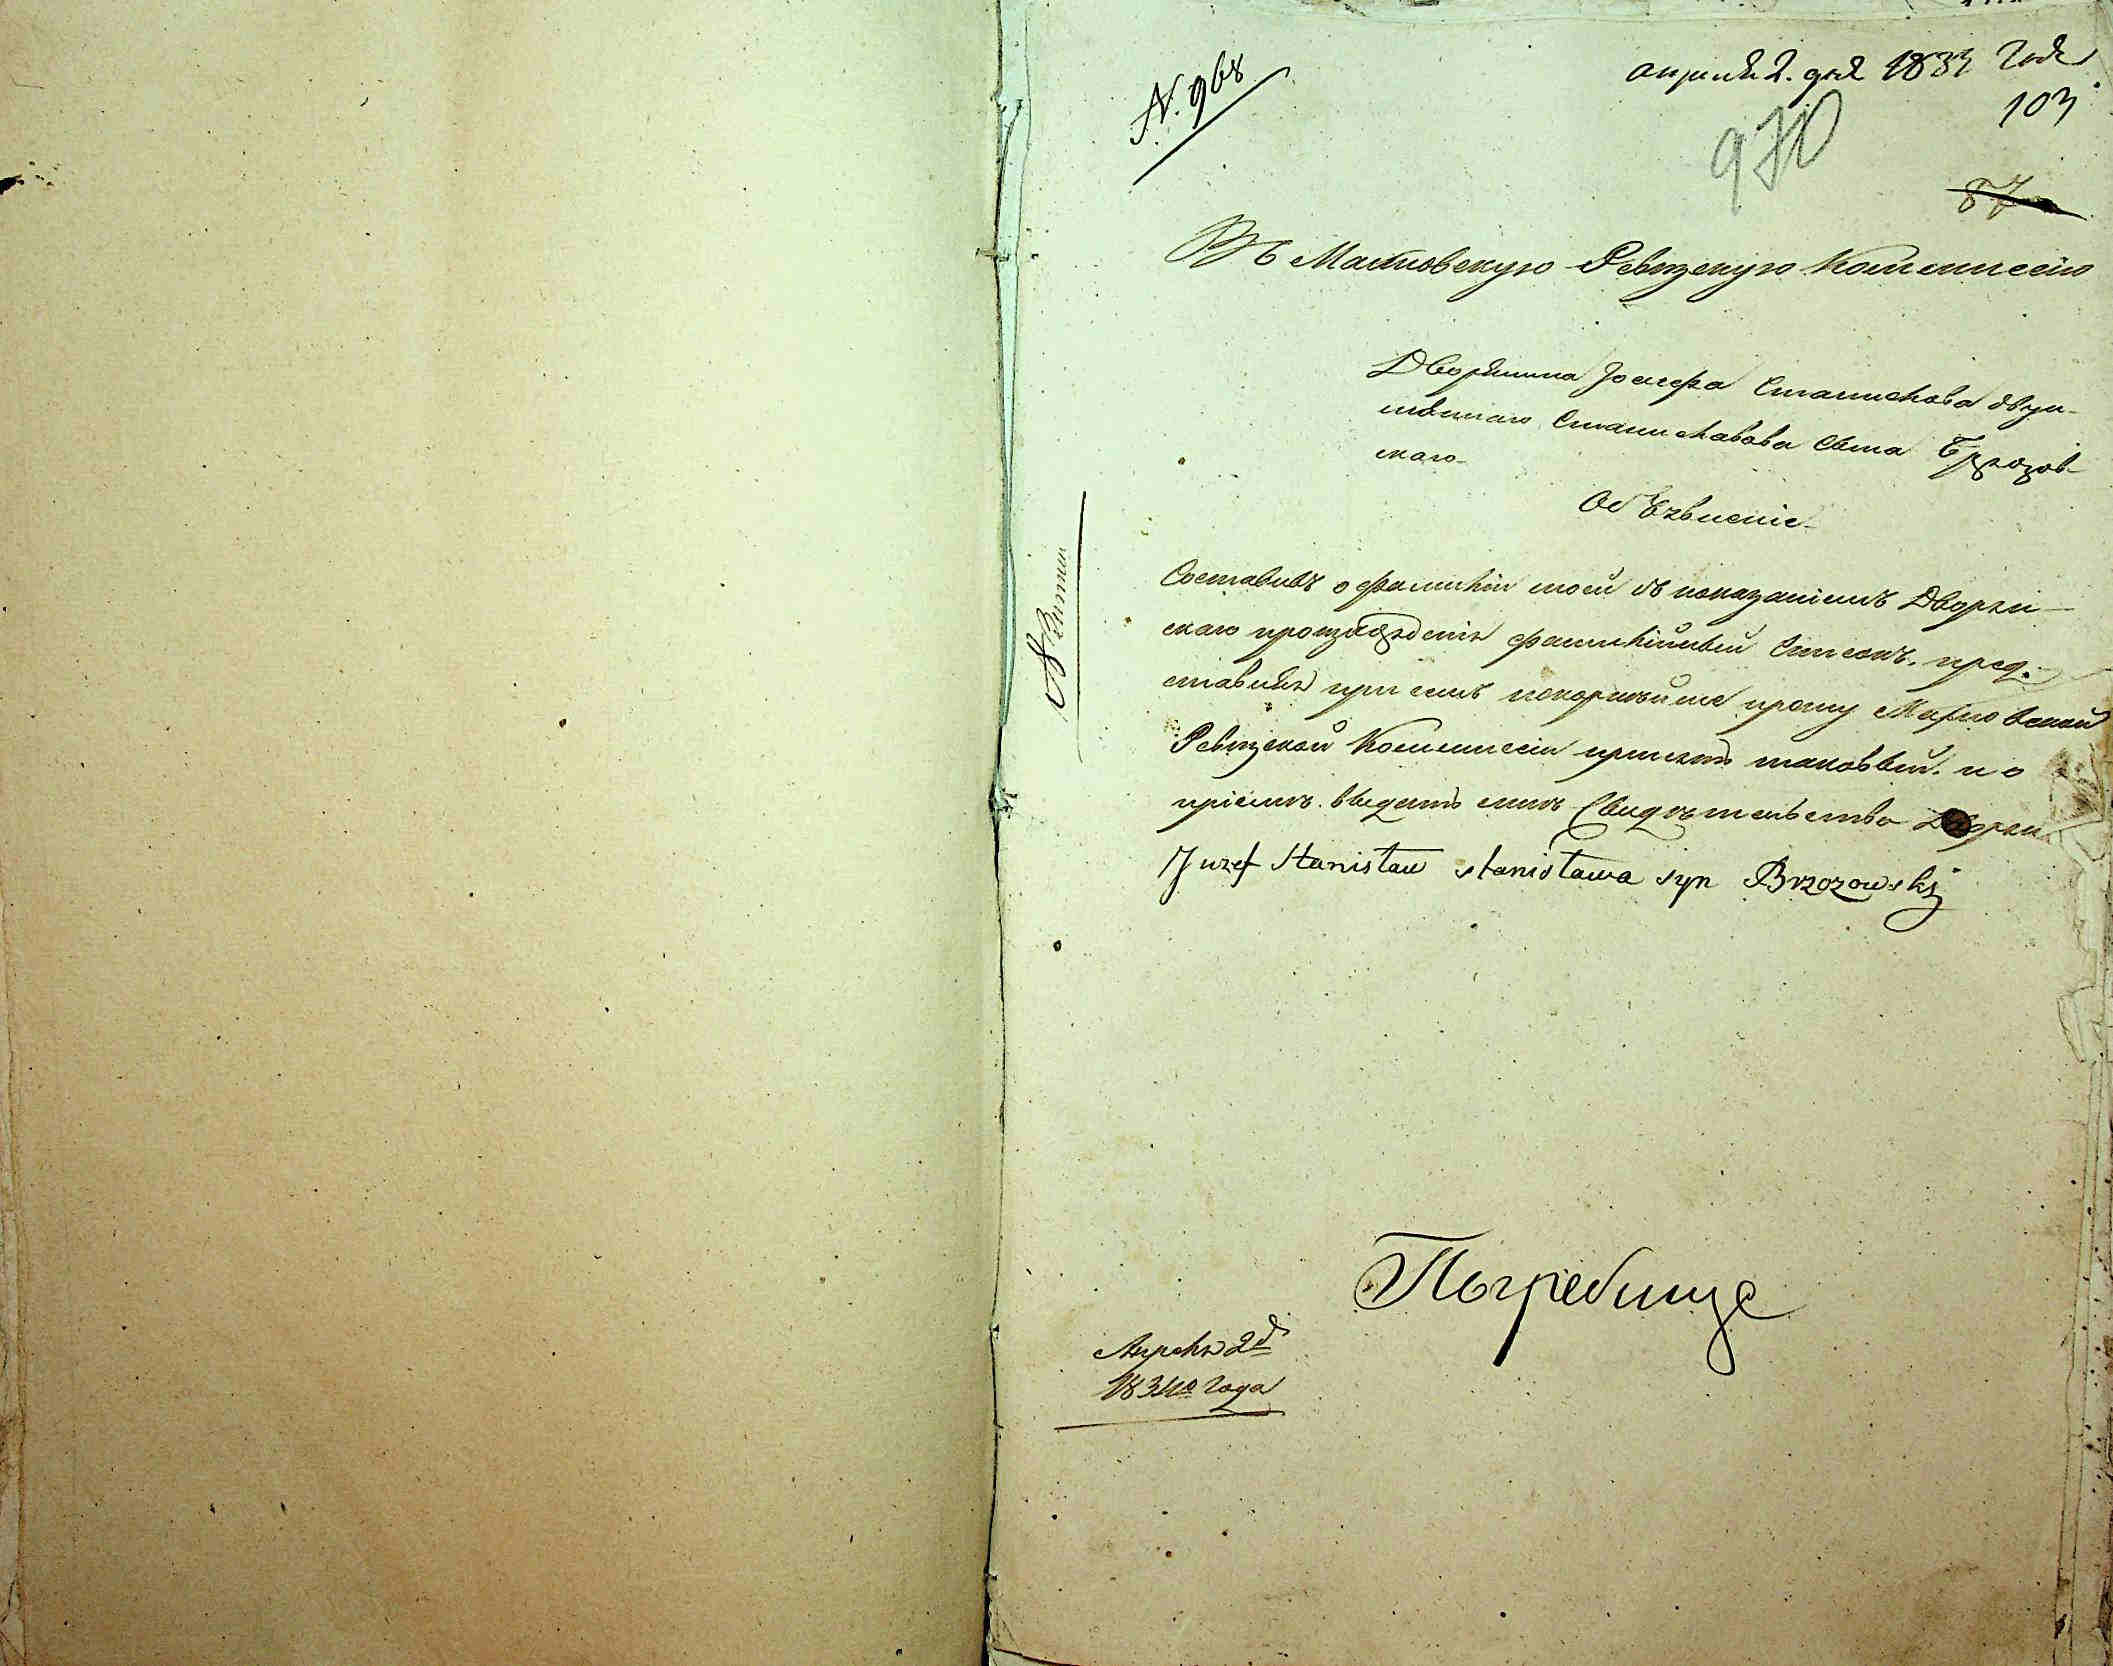 N. 968
апреля 2. дня 1834 года
103
970
87
Въ Махновскую Ревизскую Коммиссію
Дворянина Іосифа Станислава двуи-
меннаго Станиславова сына Бржозов-
скаго
Объявленіе
Составивъ о фамиліи моей съ показаніемъ Дворян-
скаго происхожденія фамилійный списокъ, пред-
ставляя при семъ покорнѣйше прошу Махновской
Ревизской Коммиссіи принять таковый и о
пріемѣ выдать мнѣ свидѣтельство
Juzef Stanisław Stanisława syn Brzozowski
Погребище
Апрѣля 2 д
1834го года